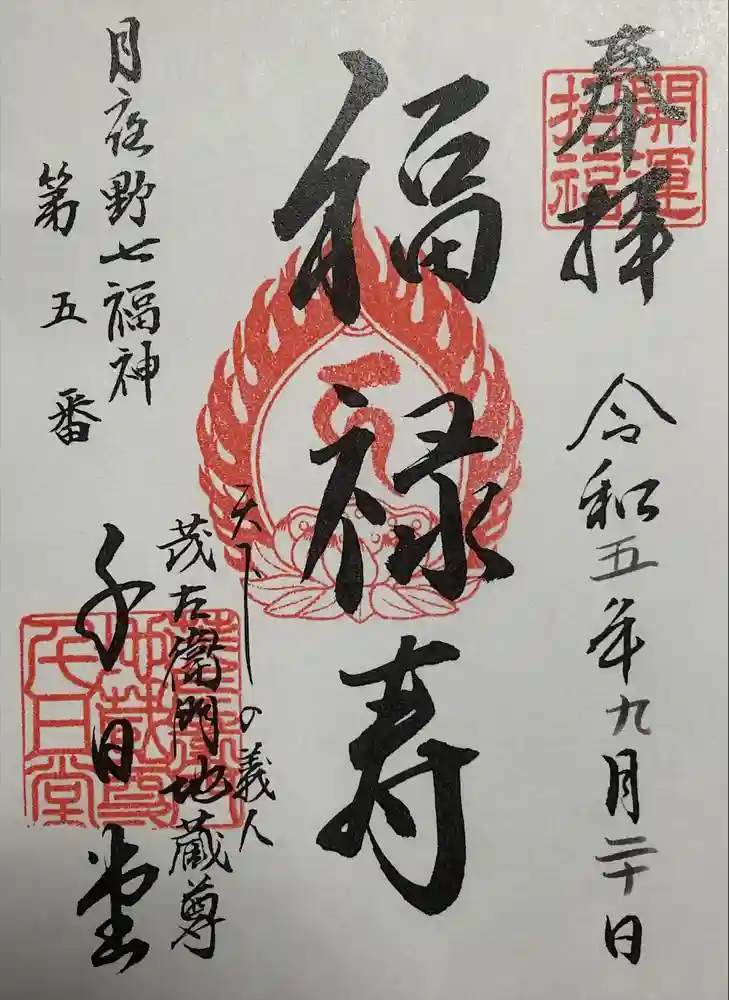 奉拝
開運
招福
令和五年九月二十日
福禄寿
月夜野七福神
第五番
天下の義人
茂左衛門地蔵尊
千日堂
地蔵尊
千日堂